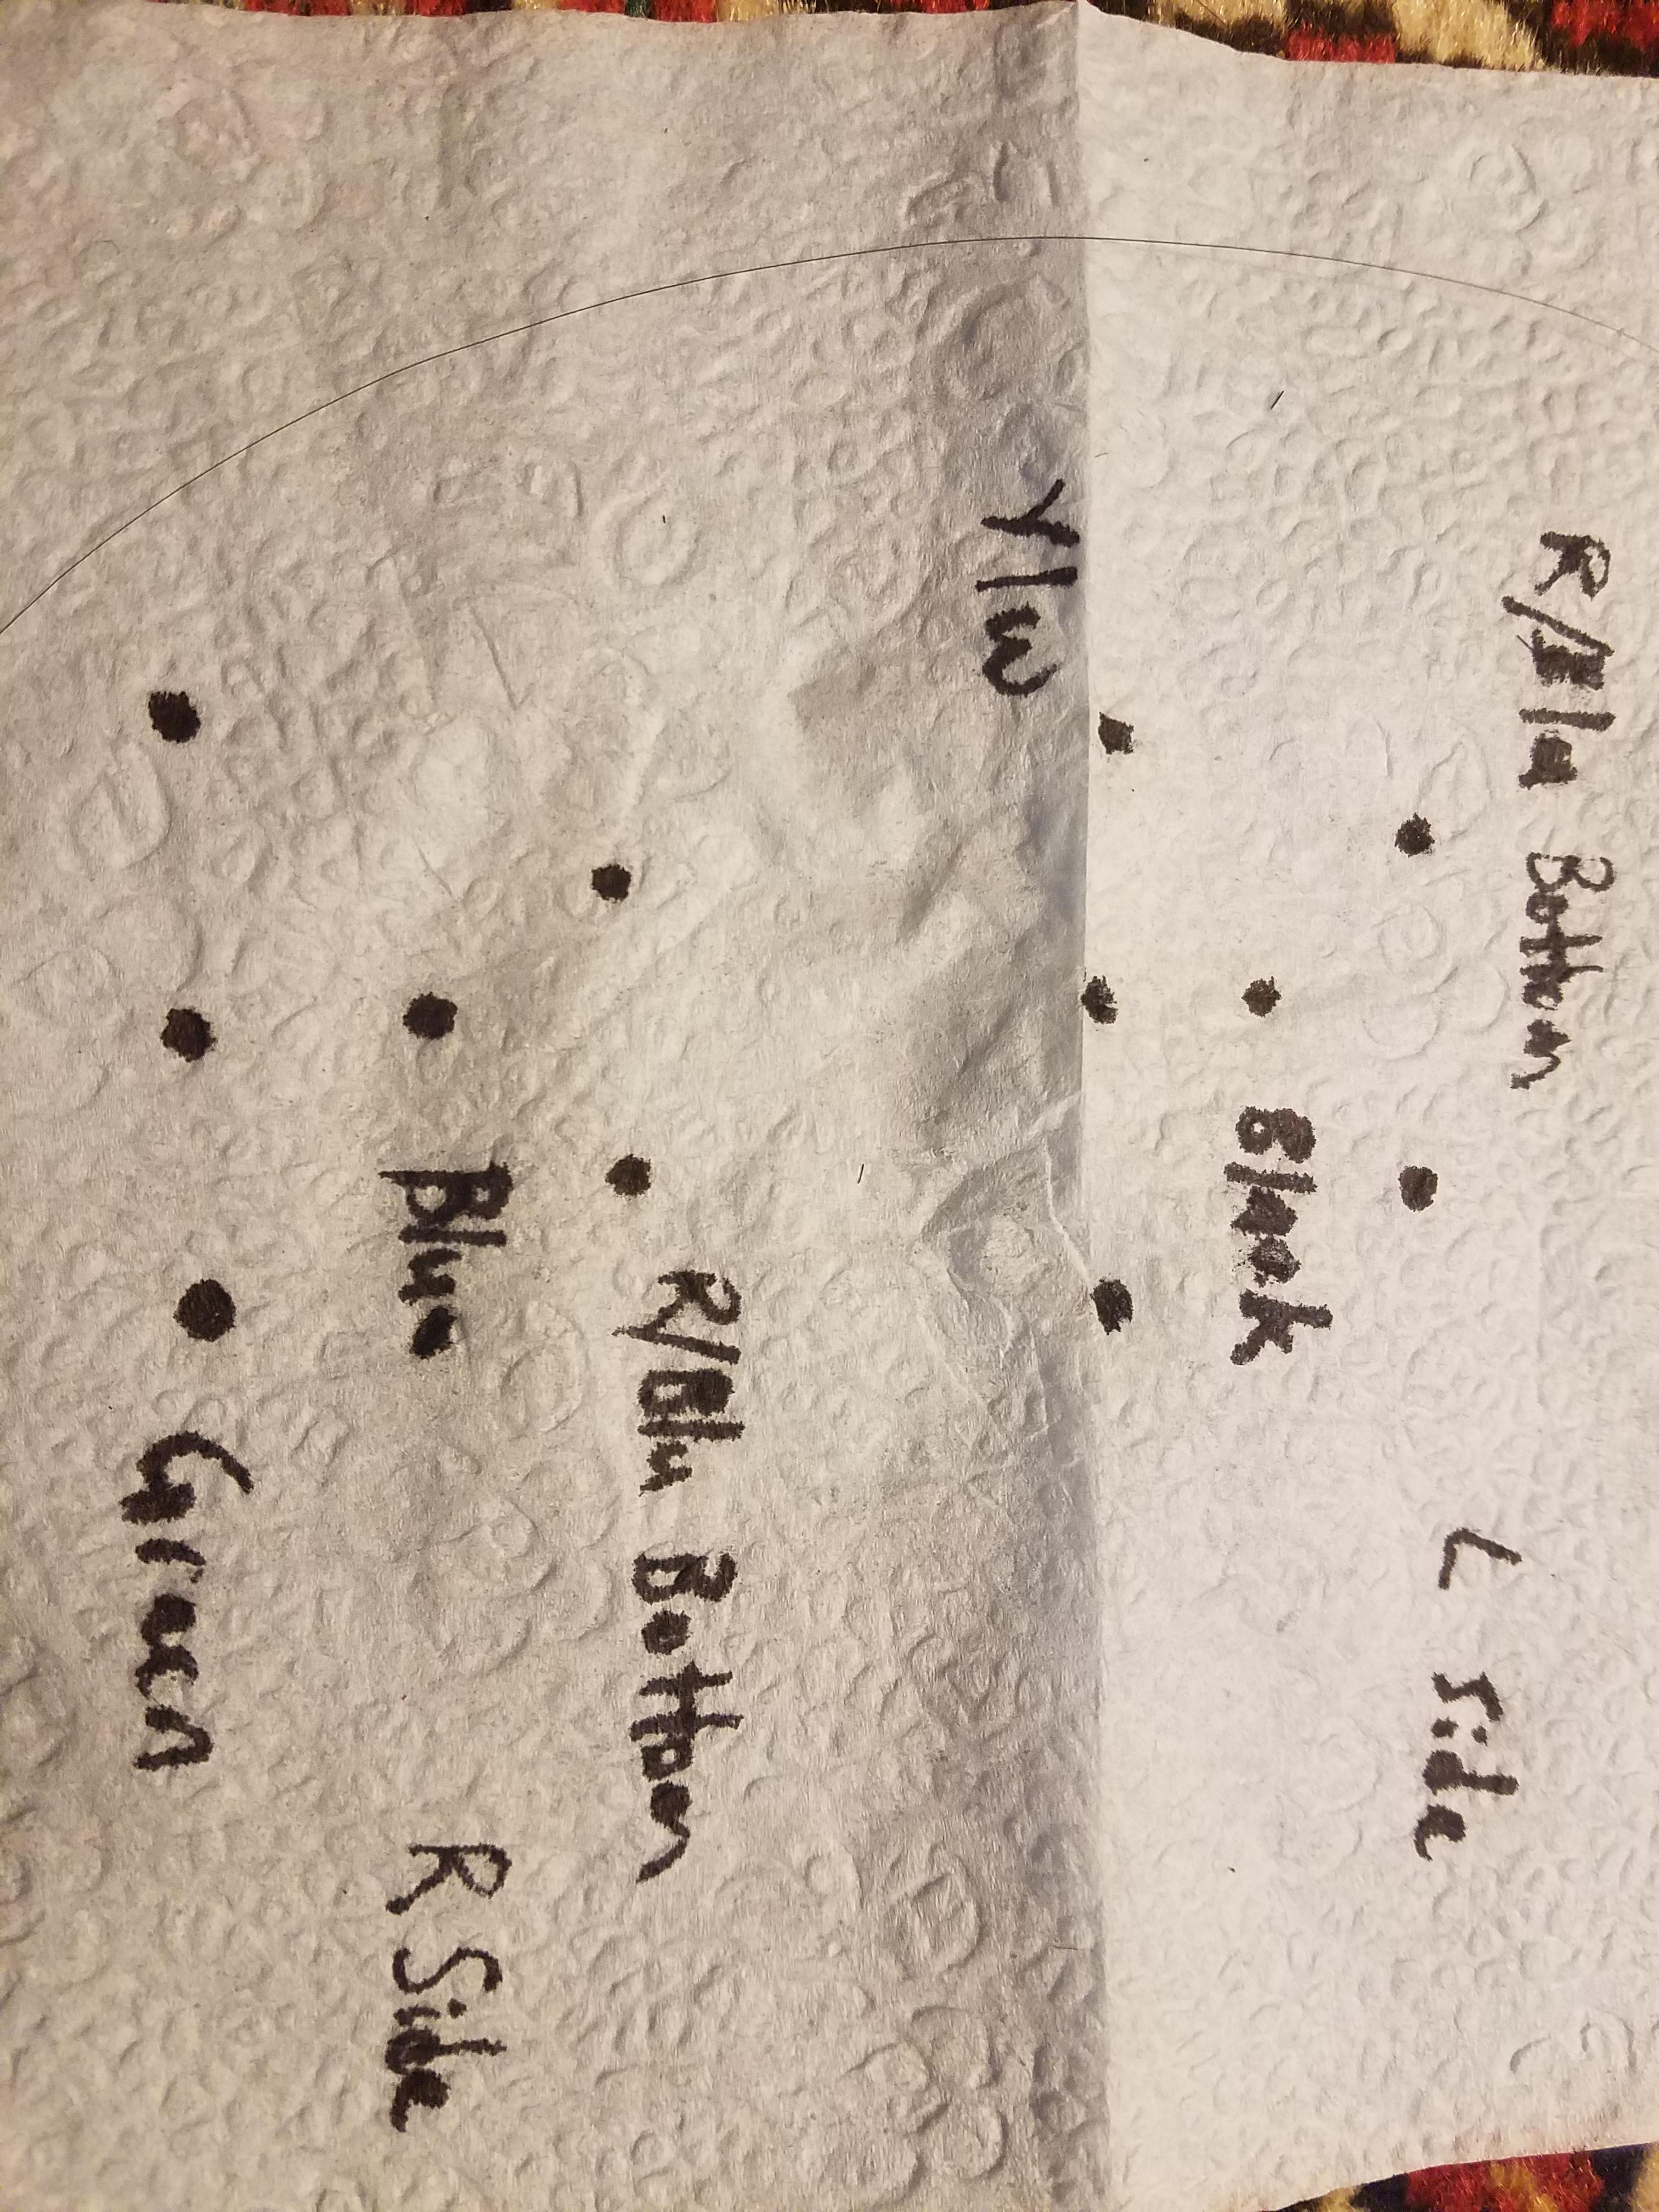 R/Blu Bottom
L side
Black
Y/W
R/Blu Bottom
Blue
R Side
Green